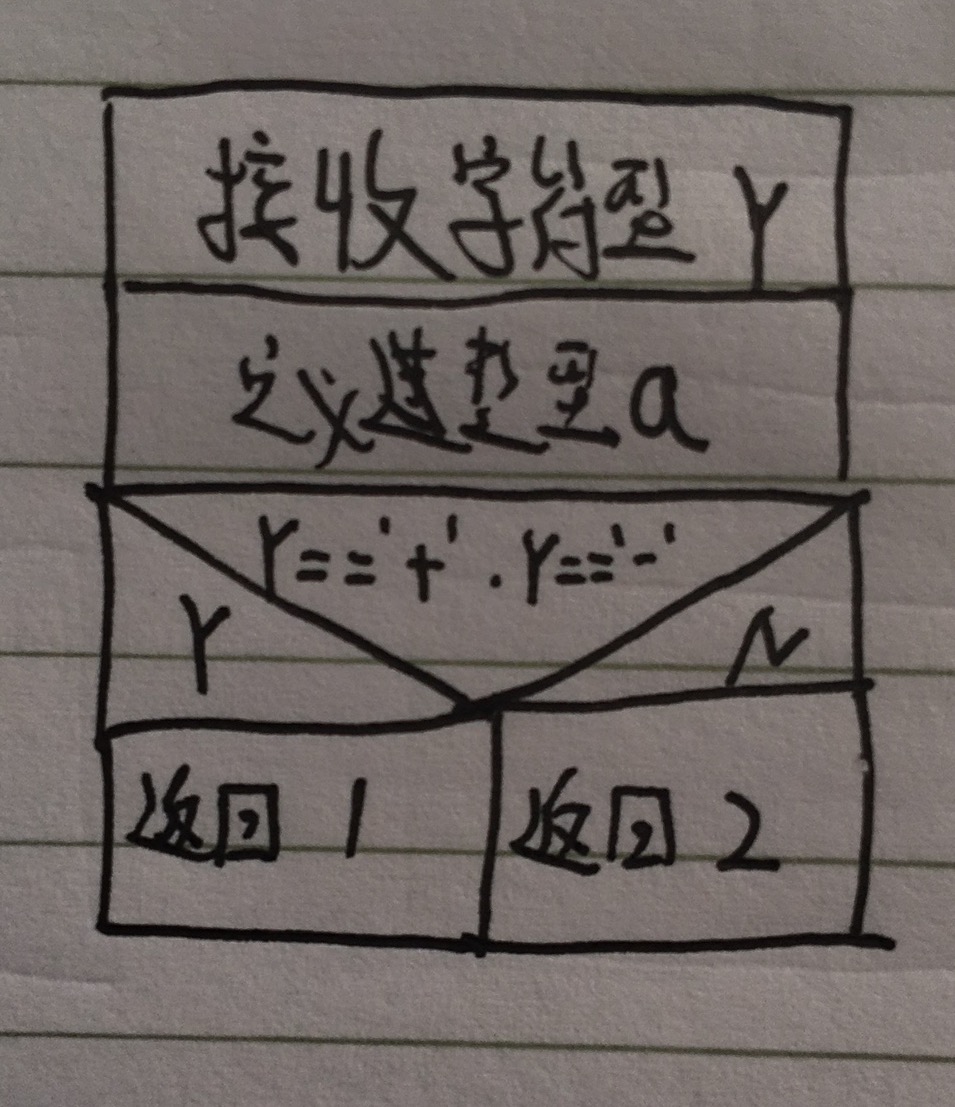 接收字符型 Y
定义整型a
Y=='+' . Y=='-'
Y N
返回 1 返回 2